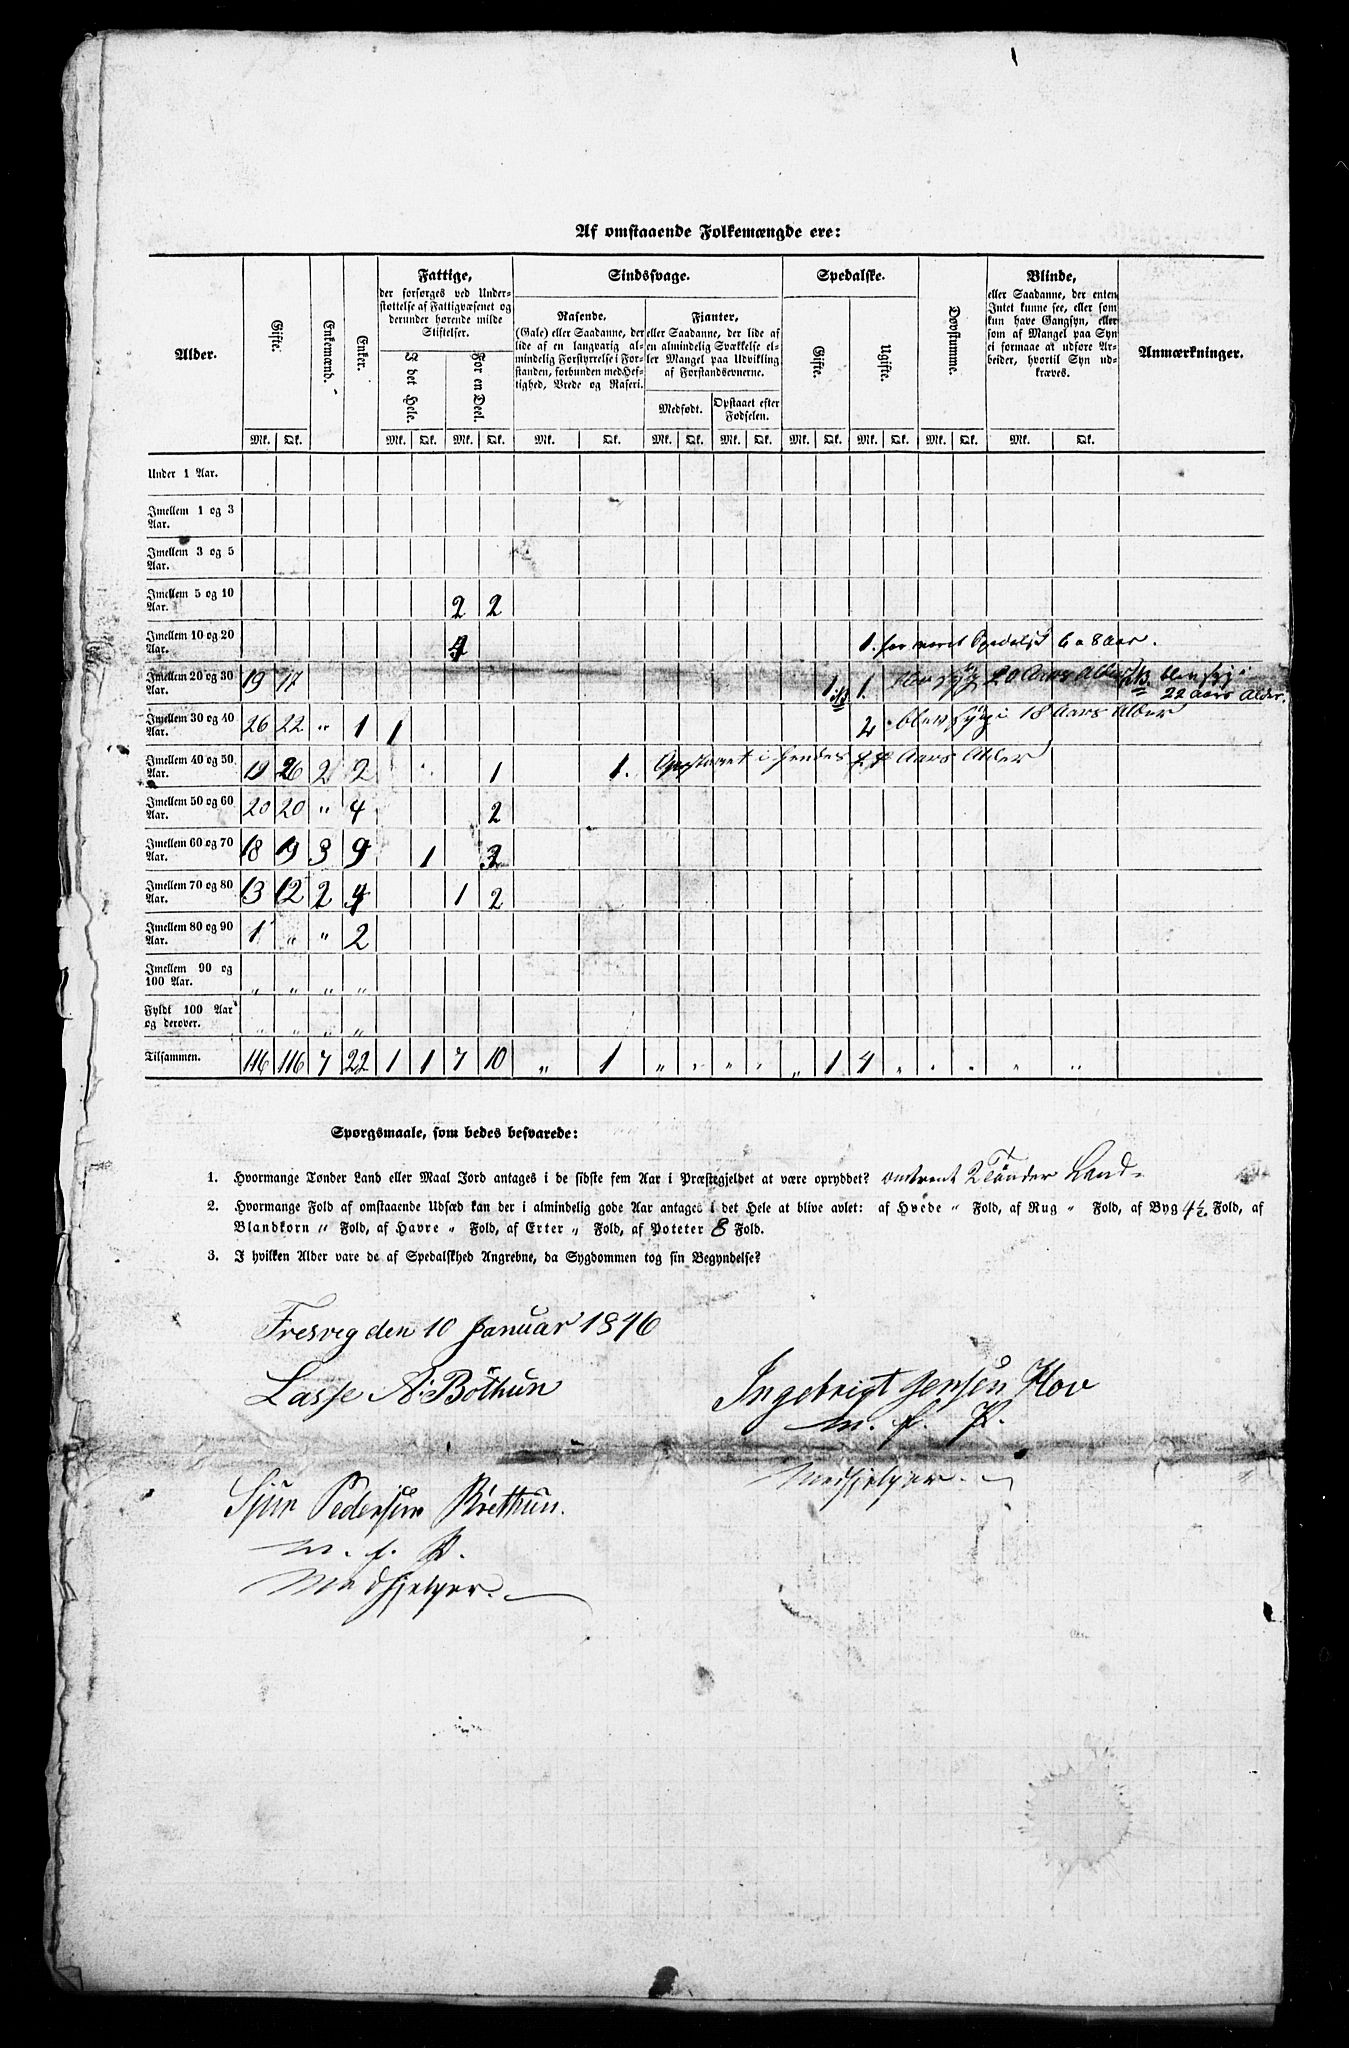 Af omstaaende Folkemængde ere:
Alder. Gifte. Enkemænd. Enker. Fattige, Sindssvage. Spedalske. Døvstumme. Blinde, Anmærkninger.
der forsørges ved Under-
støttelse af Fattigvæsenet og
derunder hørende milde
Stiftelser.
I det Hele. For en Deel.
Rasende.
(Gale) eller Saadanne, der
lide af en langvarig al-
mindelig Forstyrrelse i For-
standen, forbunden med Hef-
tighed, Vrede og Raseri.
Fianter,
eller Saadanne, der lide af
en almindelig Svækkelse el-
ler Mangel paa Udvikling
af Forstandsevnerne.
Medfødt. Opstaaet efter
Fødselen.
Gifte. Ugifte.
eller Saadanne, der enten
Intet kunne see, eller som
kun have Gangsyn, eller
som af Mangel paa Syn
ei formaae at udføre Ar-
beider, hvortil Syn ud-
kræves.
Mk. Qk. Mk. Qk. Mk. Qk. Mk. Qk. Mk. Qk. Mk. Qk. Mk. Qk. Mk. Qk. Mk. Qk. Mk. Qk.
Under 1 Aar.
Imellem 1 og 3
Aar.
Imellem 3 og 5
Aar.
Imellem 5 og 10
Aar. 2 2
Imellem 10 og 20
Aar. 4 1. har været Spedalsk 6 a 8 Aar.
Imellem 20 og 30
Aar. 19 17 1 NB 1. blev syg i 20 Aars Alder NB. blev syg i
22 Aars Alder.
Imellem 30 og 40
Aar. 26 22 " 1 1 2 blev syg i 18 Aars Alder
Imellem 40 og 50
Aar. 19 26 2 2 1 1. Opstaaet i hendes Aars Alder
Imellem 50 og 60
Aar. 20 20 " 4 2
Imellem 60 og 70
Aar. 18 19 3 9 1 3
Imellem 70 og 80
Aar. 13 12 2 4 1 2
Imellem 80 og 90
Aar. 1 " " 2
Imellem 90 og
100 Aar. " " " "
Fyldt 100 Aar
og derover. " " " "
Tilsammen. 116 116 7 22 1 1 7 10 " 1 " " " " " 1 4 " " " " "
Spørgsmaale, som bedes besvarede:
1. Hvormange Tønder Land eller Maal Jord antages i de sidste fem Aar i Præstegjeldet at være opryddet? omtrent 2 Tönder Land.
2. Hvormange Fold af omstaaende Udsæd kan der i almindelig gode Aar antages i det Hele at blive avlet: af Hvede " Fold, af Rug " Fold, af Byg 4½ Fold, af
Blandkorn " Fold, af Havre " Fold, af Erter " Fold, af Poteter 8 Fold.
3. I hvilken Alder vare de af Spedalskhed Angrebne, da Sygdommen tog sin Begyndelse?
Fresvig den 10 Januar 1846
Lasse A. Böthun
Ingebrigt Jensen Hov
m. f. P.
Medhjelper.
Sjur Pedersen Böethun.
m. f. P.
Medhjelper.